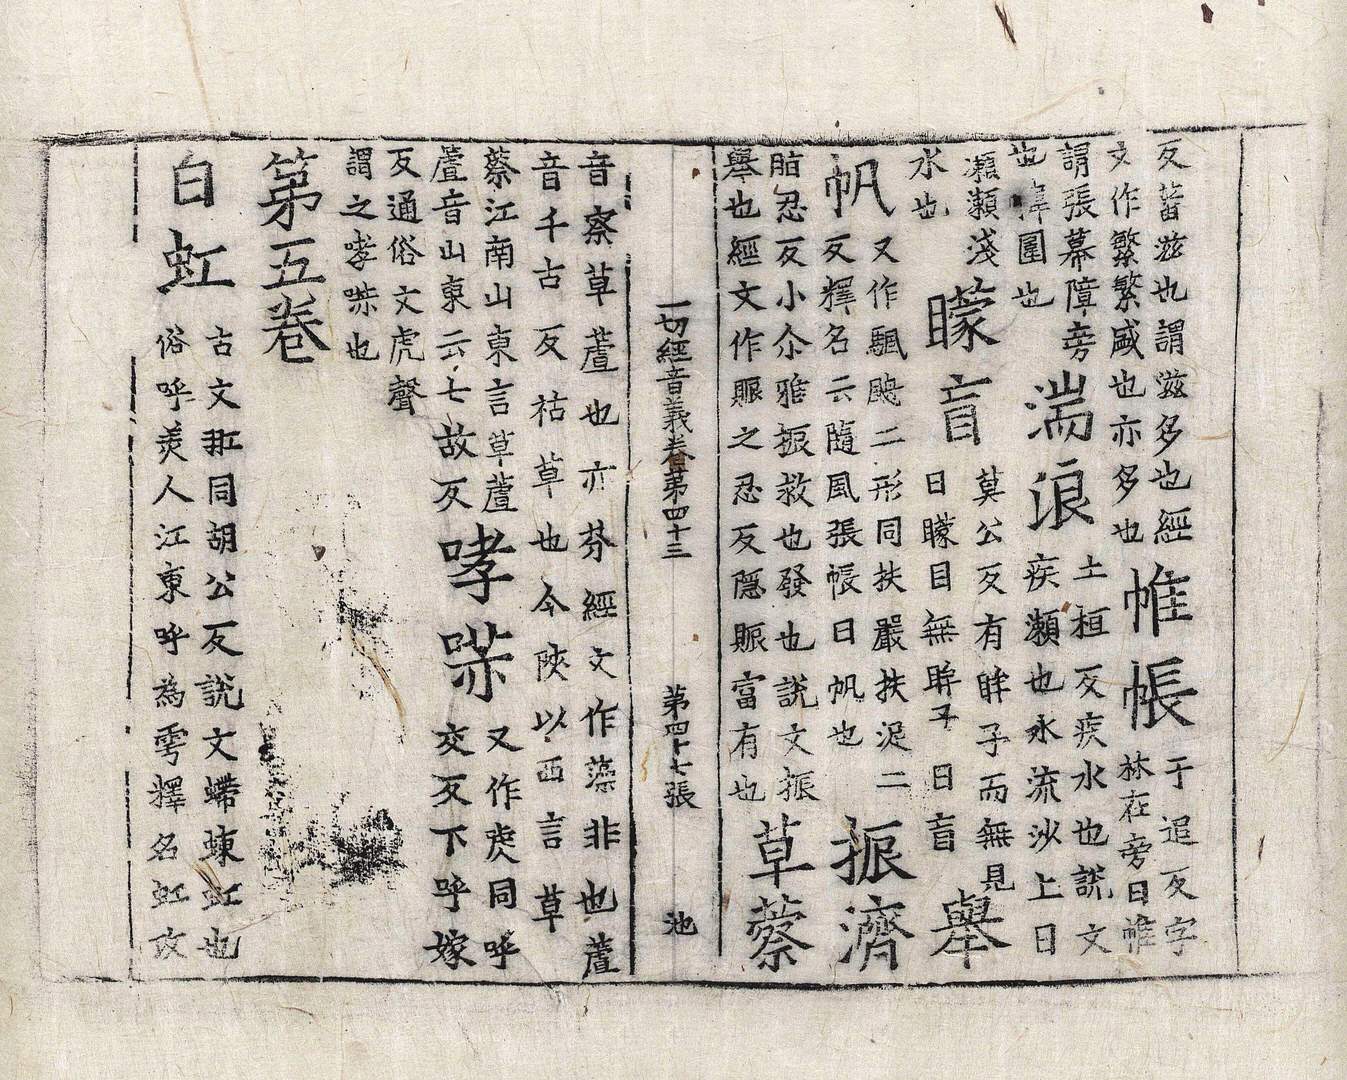 反蕃滋也謂滋多也經
文作繁繁盛也亦多也
帷帳
于追反字
林在旁曰帷
謂張幕障旁
也幃圍也
湍浪
土桓反疾水也說文
疾瀨也水流沙上曰
瀨瀨淺
水也
矇盲
莫公反有眸子而無見
曰矇目無眸子曰盲
舉
帆
又作颿二形同扶嚴扶泛二
反釋名云隨風張帳曰帆也
振濟
脂忍反小尒雅振救也發也說文振
舉也經文作賑之忍反隱賑富有也
草蔡
一切經音義卷第四十三 第四十七張 池
音察草蔖也亦芥經文作藻非也蔖
音千古反枯草也今陝以西言草
蔡江南山東言草蔖
蔖音山東云七故反
哮㗫
又作虓同呼
交反下呼嫁
反通俗文虎聲
謂之哮㗫也
第五卷
白虹
古文同胡公反說文螮蝀虹也
俗呼美人江東呼為雩釋名虹攻